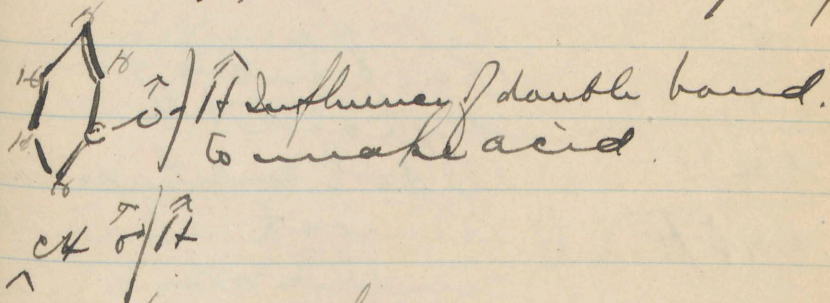 H
H H
C - O - H Influence of double bond.
H to make acid.
H
CH O H